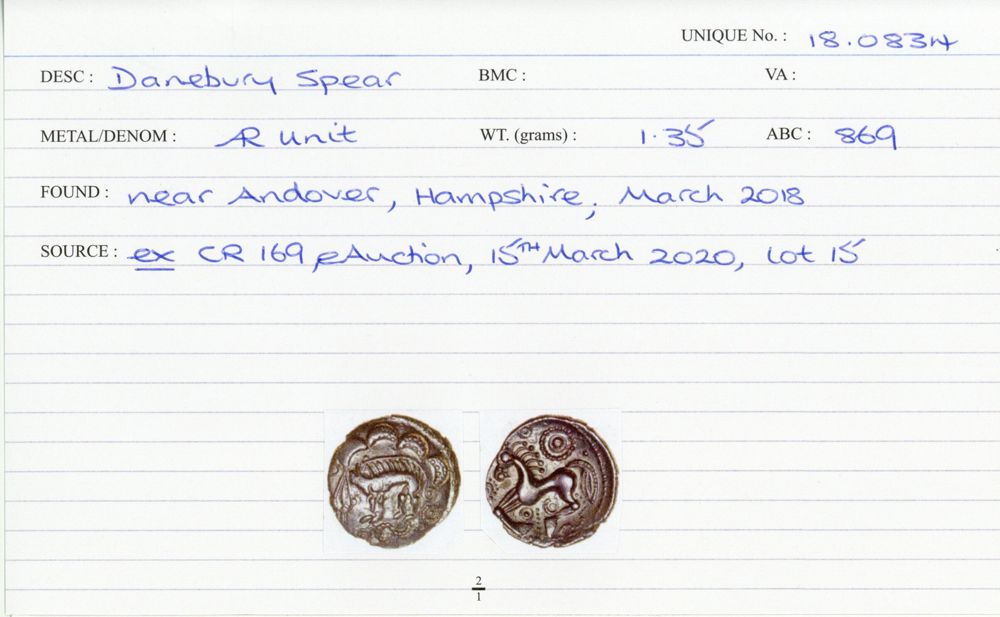 UNIQUE No. : 18.0834
DESC : Danebury Spear BMC : VA :
METAL/DENOM : AR unit WT. (grams) : 1.35 ABC : 869
FOUND : near Andover, Hampshire, March 2018
SOURCE : ex CR 169 eAuction, 15TH March 2020, lot 15
2
1